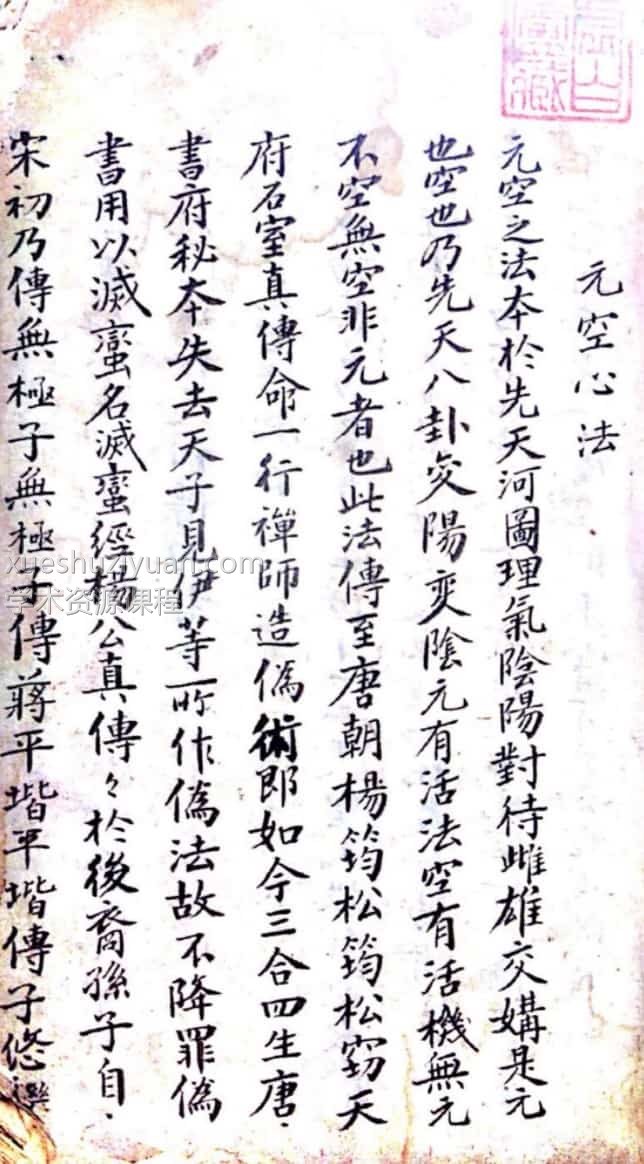 元空心法
元空之法本於先天河圖理氣陰陽對待雌雄交媾是元
也空也乃先天八卦爻陽爻陰元有活法空有活機無元
不空無空非元者也此法傳至唐朝楊筠松筠松竊天
府石室真傳命一行禪師造偽術即如今三合四生唐、
書府秘本失去天子見伊等所作偽法故不降罪偽
書用以滅蠻名滅蠻經楊公真傳々於後裔孫子自、
宋初乃傳無極子無極子傳蔣平堦平堦傳子悠
xueshuziyuan.com
学术资源课程